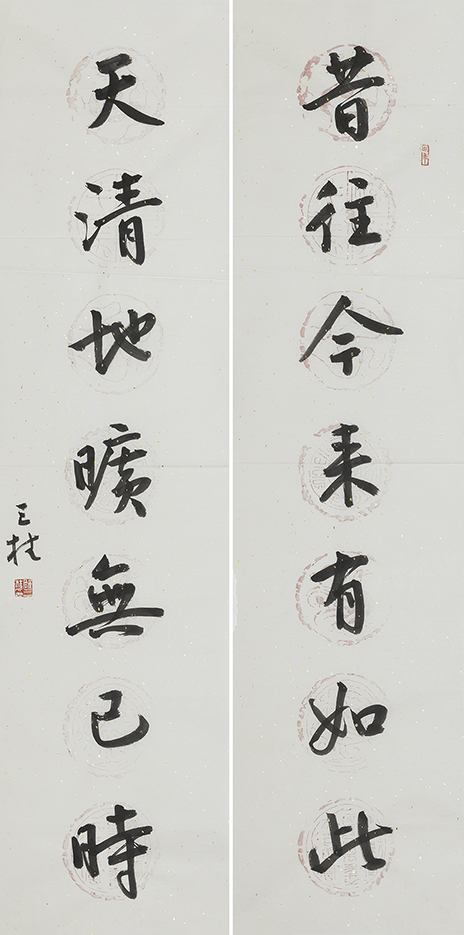 昔往今来有如此
天清地曠無已時